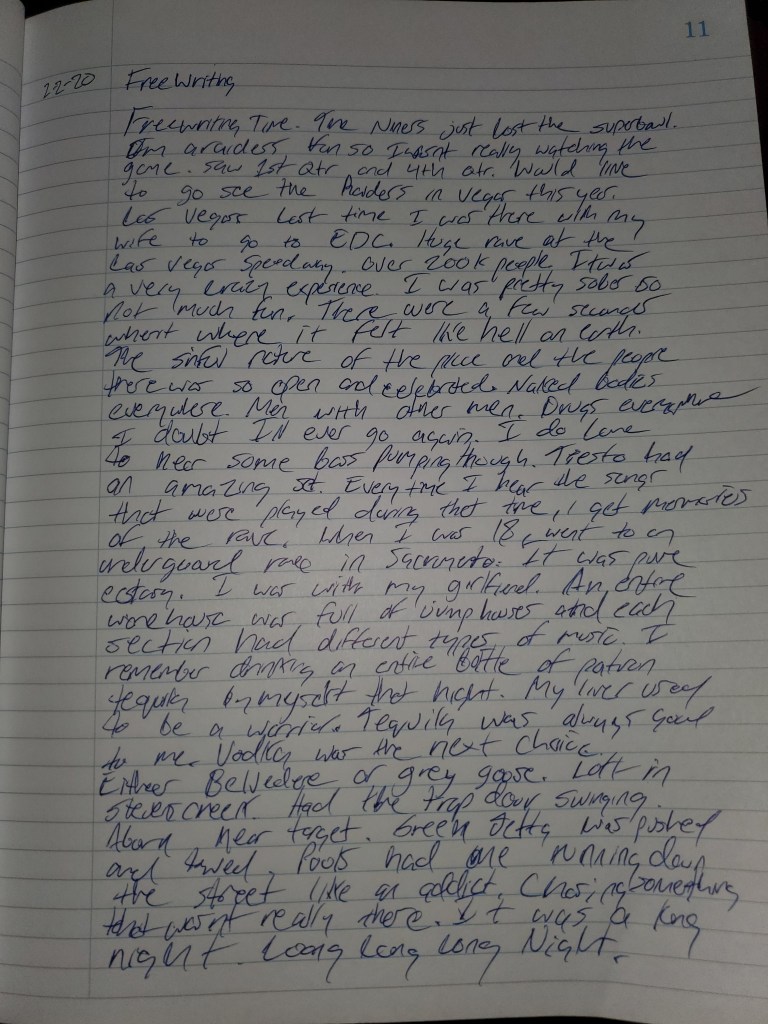 11
2-2-20 FreeWriting
Freewriting Time. The Niners just lost the superbowl.
I'm a raiders fan so I wasnt really watching the
game. Saw 1st Qtr and 4th qtr. Would like
to go see the Raiders in Vegas this year.
Las Vegas last time I was there with my
wife to go to EDC. Huge rave at the
Las Vegas Speedway. Over 200k people. It was
a very crazy experience. I was pretty sober so
not much fun. There were a few seconds
where it felt like hell on earth.
The sinful nature of the place and the people
there was so open and celebrated. Naked bodies
everywhere. Men with other men. Drugs everywhere
I doubt I'll ever go again. I do love
to hear some bass pumping though. Tiesto had
an amazing set. Everytime I hear the songs
that were played during that time, I get memories
of the rave. When I was 18, went to an
underground rave in Sacramento. It was pure
ecstasy. I was with my girlfriend. An entire
warehouse was full of jump houses and each
section had different types of music. I
remember drinking an entire bottle of patron
tequila by myself that night. My liver used
to be a warrior. Tequila was always good
to me. Vodka was the next choice
Either Belvedere or grey goose. Loft in
stevenscreek. Had the trap door swinging.
Aborn near target. Green Jetta was pushed
and towed. Pools had me running down
the street like an addict. Chasing something
that wasnt really there. It was a long
night. Loong Long Long Night.